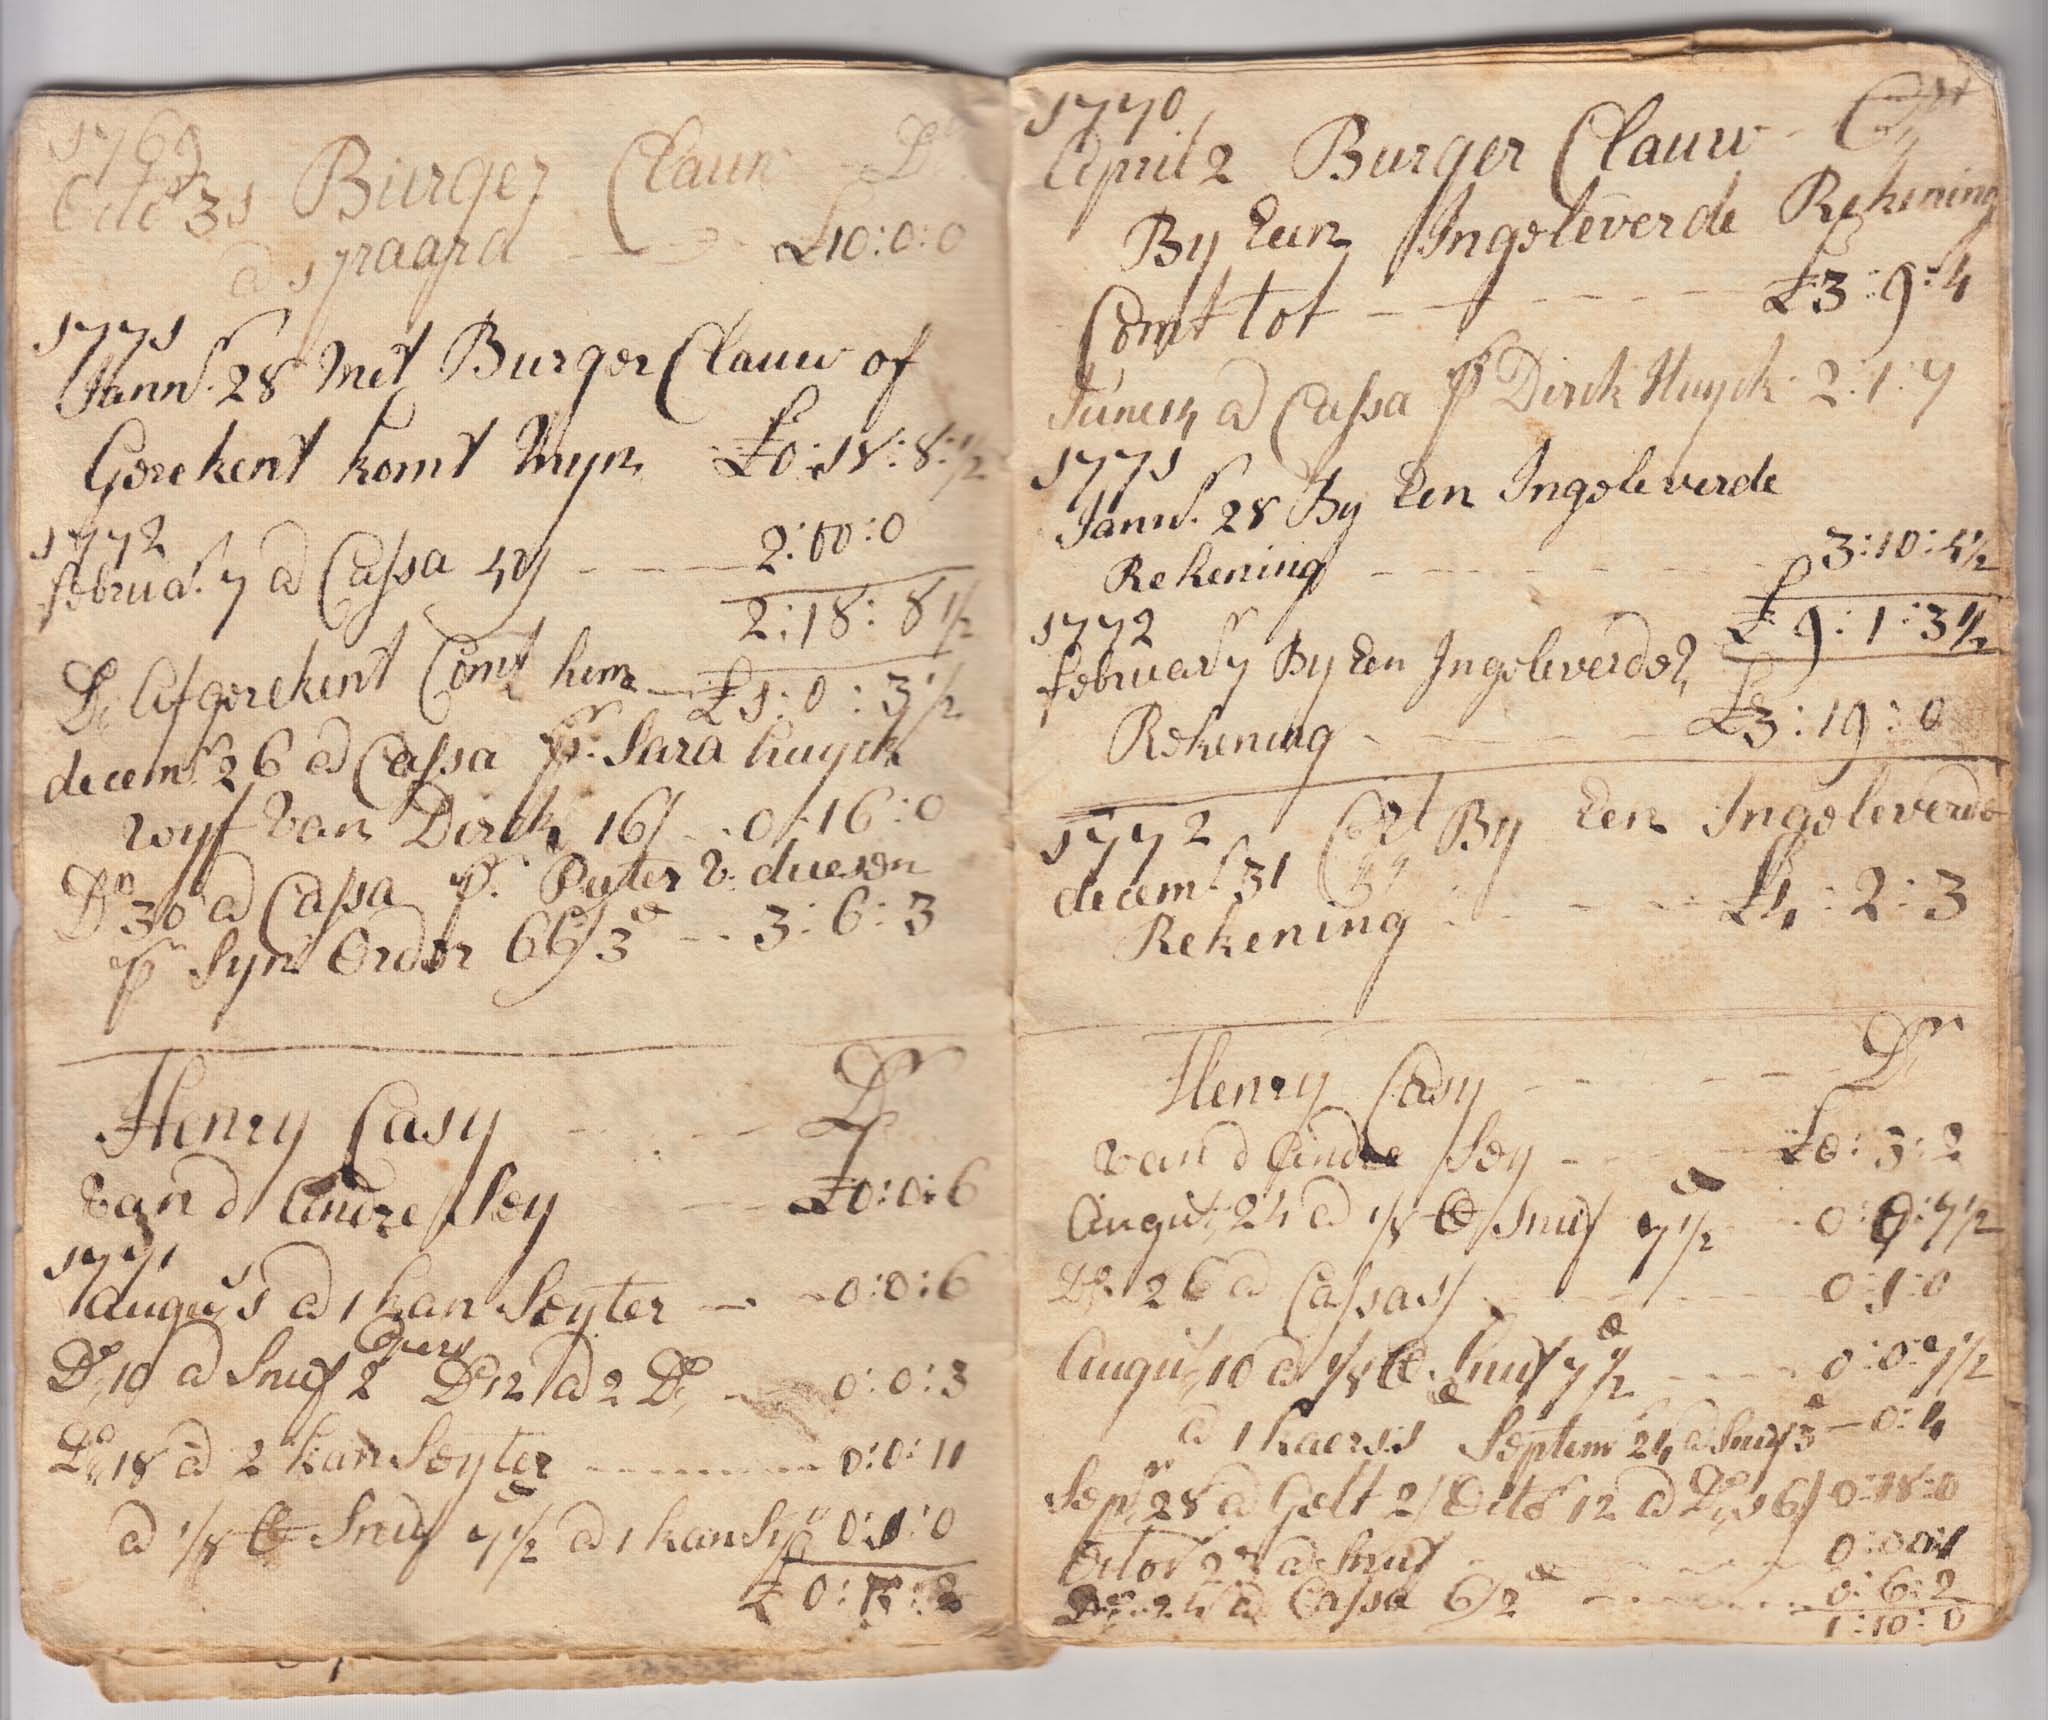 1769
Octo 31 Burger Clauw Dr
a 1 paard £10:0:0
1771
Jann. 28 Met Burger Clauw of
Gerekent komt Myn £0:18:8½
1772
februa. 7 a Cassa 40/ 2:00:0
2:18:8½
Do Afgerekent Comt hem £1:0:3½
decemr 26 a Cassa pr. Sara huyck
wyf van Dirck 16/ 0:16:0
Do 30 a Cassa pr. Pieter v. duesen
pr Syn Order 66/3 3:6:3
Henry Casy Dr
van d Andre Sey £0:0:6
1771
augus 5 a 1 kan Seyter 0:0:6
Do 10 a Snuf 2 Do 12 a 2 Do 0:0:3
Do 18 a 2 kan Seyter 0:0:11
a 1/8 ℔ Snuf 7½ a 1 kan Syd 0:1:0
£0:3:2
1770
April 2 Burger Clauw Crt
By Een Ingeleverde Rekening
Comt tot £3:9:4
June 14 a Cassa pr Dirck Huyck 2:1:7
1771
Jann. 28 By Een Ingeleverde
Rekening 3:10:4½
£9:1:3½
1772
februar 7 By Een Ingeleverde
Rekening £3:19:0
1772 Crt By Een Ingeleverde
decemr 31
Rekening £4:2:3
Henry Casy Dr
van d Andre Sey £0:3:2
August 24 a 1/8 ℔ Snuf 7½ 0:0:7½
Do 26 a Cassa 1/ 0:1:0
August 10 a 1/8 ℔ Snuf 7½ 0:0:7½
a 1 kaersis Septem 24 a Snuf 3 0:4
Sepr 28 a Gelt 2/ Octo 12 a Do 16/ 0:18:0
Octor 23 a Snuf 0:0:1
Do 24 a Cassa 6/2 0:6:2
1:10:0